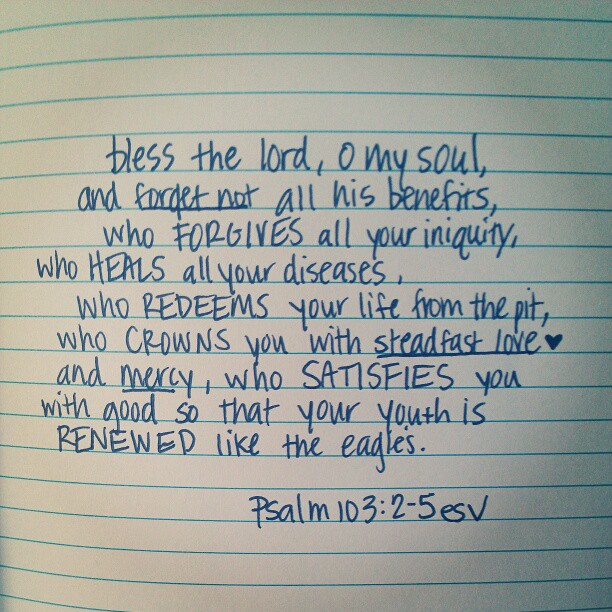 bless the lord, O my soul,
and forget not all his benefits,
who FORGIVES all your iniquity,
who HEALS all your diseases,
who REDEEMS your life from the pit,
who CROWNS you with steadfast love ♥
and mercy, who SATISFIES you
with good so that your youth is
RENEWED like the eagles.
Psalm 103:2-5 esv